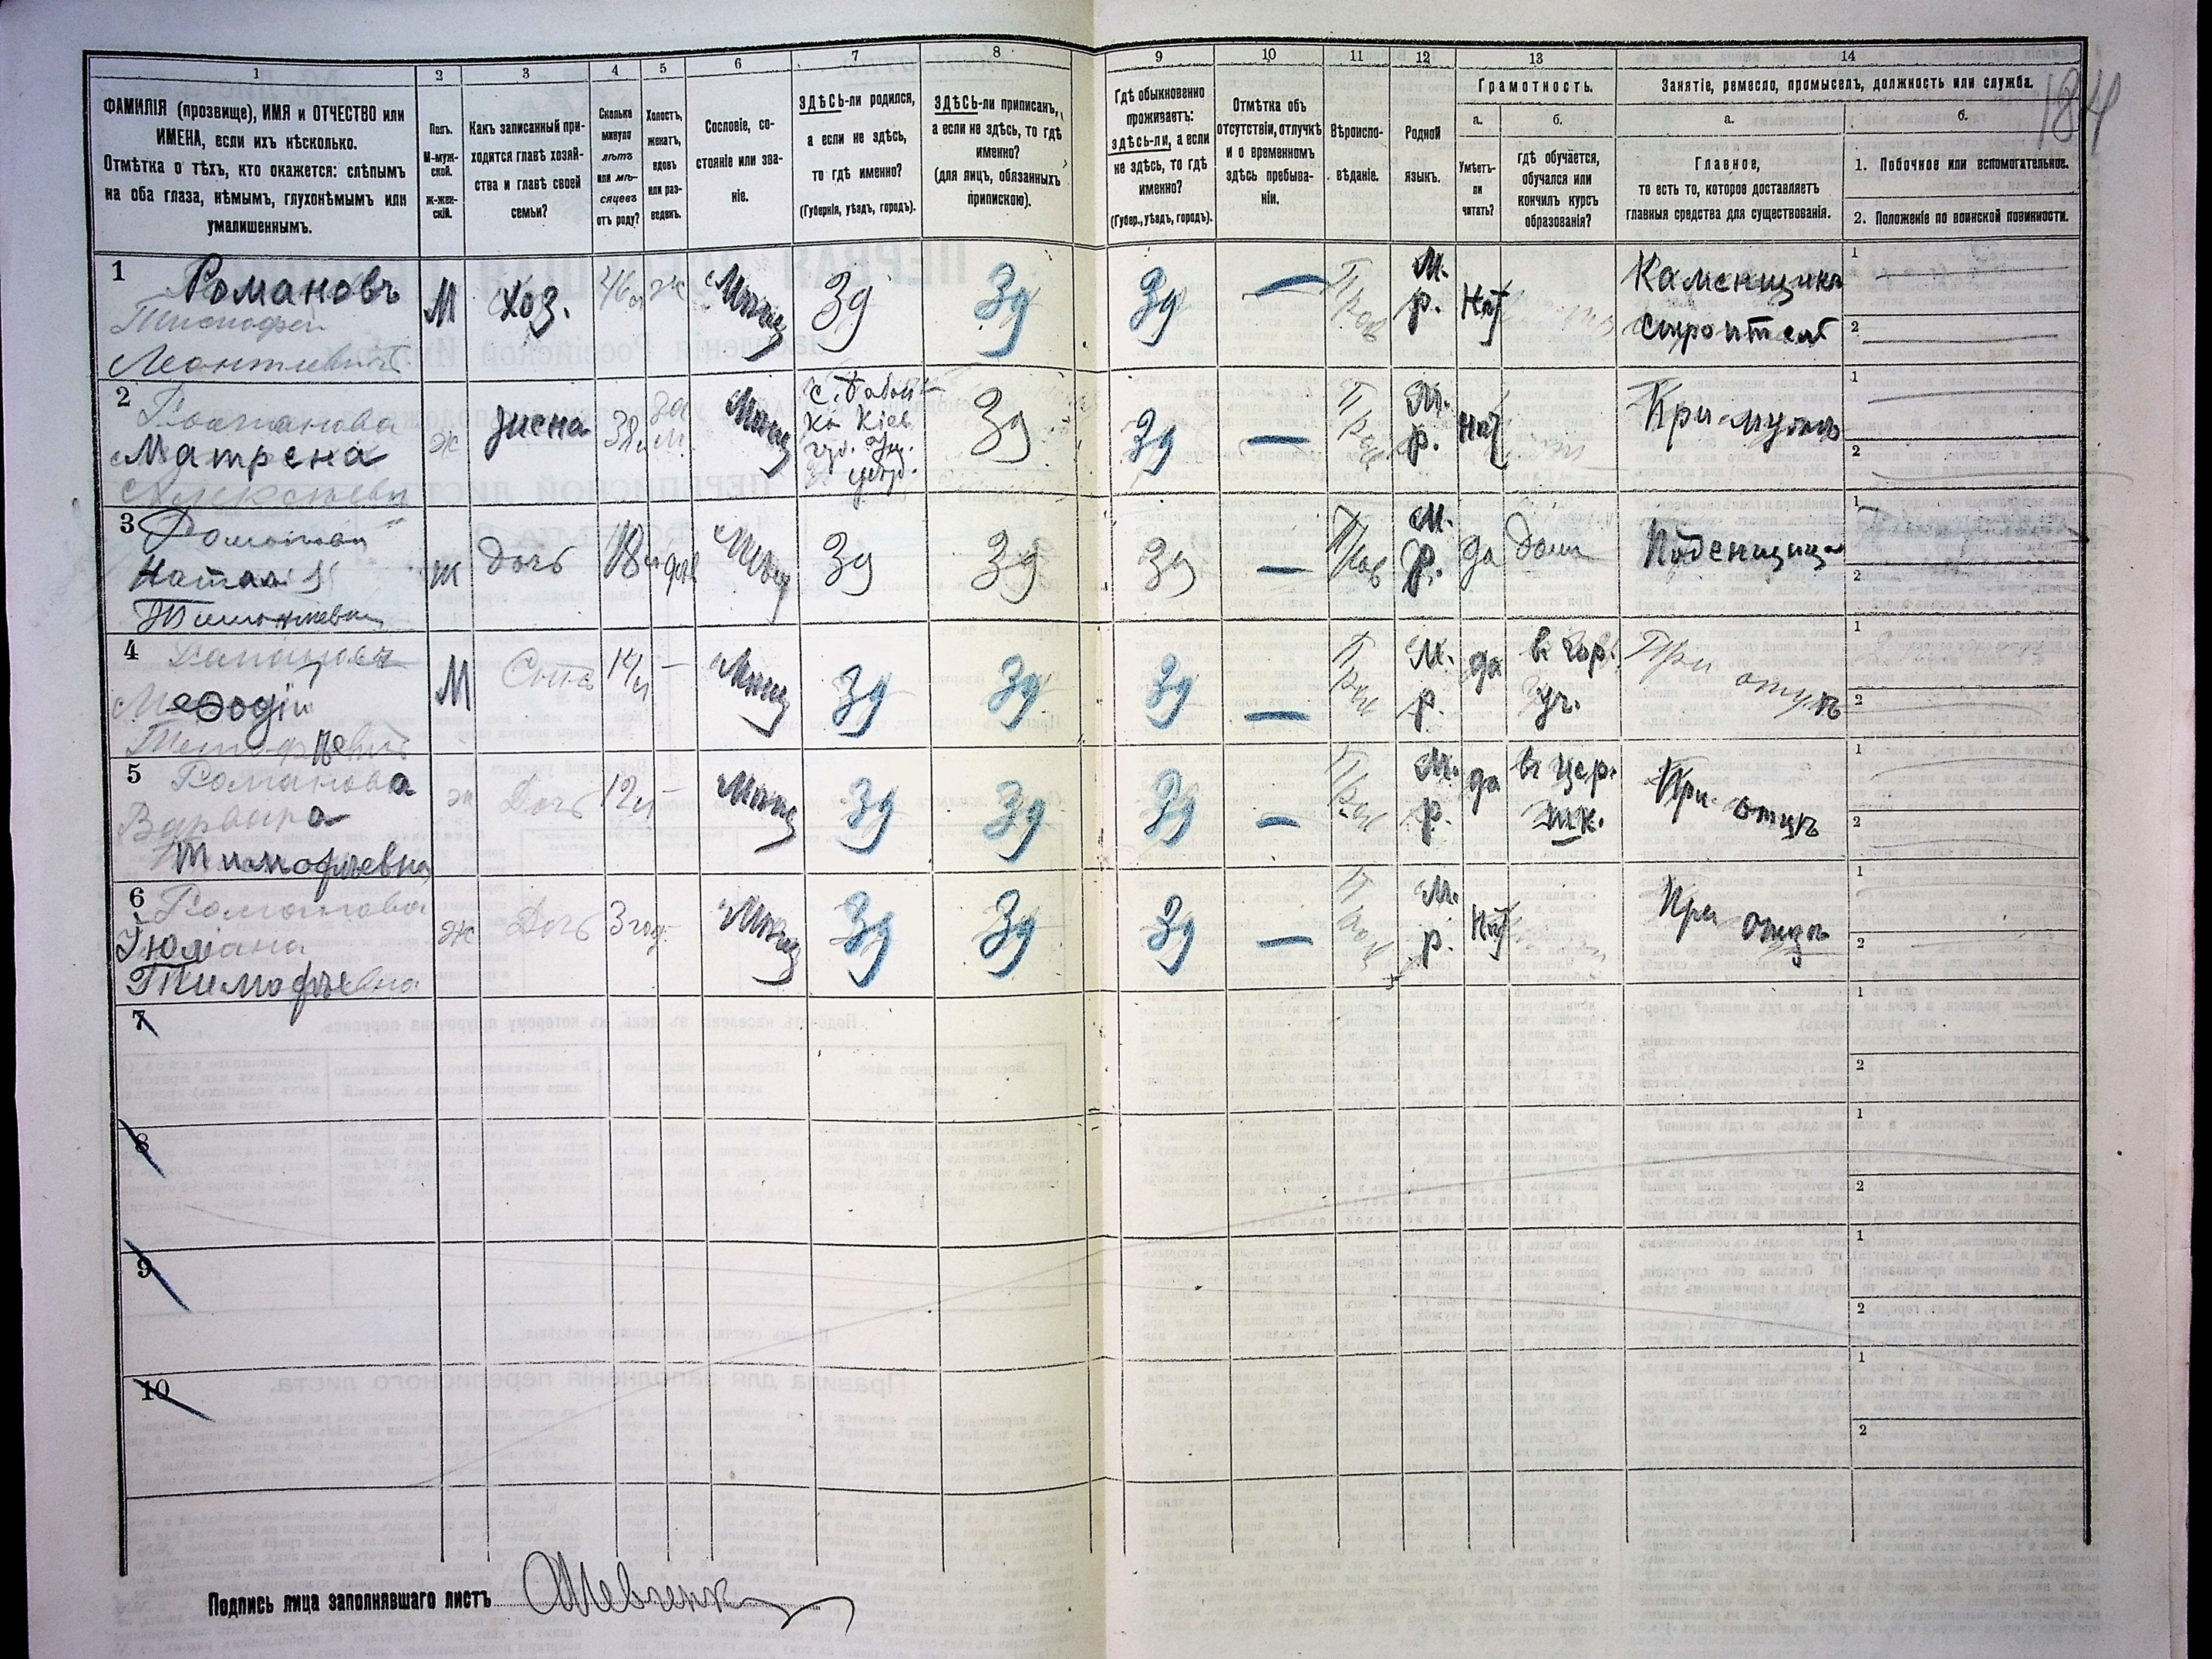 184
1 2 3 4 5 6 7 8 9 10 11 12 13 14
ФАМИЛІЯ (прозвище), ИМЯ и ОТЧЕСТВО или
ИМЕНА, если ихъ нѣсколько.
Отмѣтка о тѣхъ, кто окажется: слѣпымъ
на оба глаза, нѣмымъ, глухонѣмымъ или
умалишеннымъ.
Полъ.
М-муж-
ской.
Ж-жен-
скій.
Какъ записанный при-
ходится главѣ хозяй-
ства и главѣ своей
семьи?
Сколько
минуло
лѣтъ
или мѣ-
сяцевъ
отъ роду?
Холостъ,
женатъ,
вдовъ
или раз-
веденъ.
Сословіе, со-
стояніе или зва-
ніе.
ЗДѢСЬ-ли родился,
а если не здѣсь,
то гдѣ именно?
(Губернія, уѣздъ, городъ).
ЗДѢСЬ-ли приписанъ,
а если не здѣсь, то гдѣ
именно?
(для лицъ, обязанныхъ
припискою).
Гдѣ обыкновенно
проживаетъ:
здѣсь-ли, а если
не здѣсь, то гдѣ
именно?
(Губер., уѣздъ, городъ).
Отмѣтка объ
отсутствіи, отлучкѣ
и о временномъ
здѣсь пребыва-
ніи.
Вѣроиспо-
вѣданіе.
Родной
языкъ.
Грамотность.
а.
Умѣетъ-
ли
читать?
б.
гдѣ обучается,
обучался или
кончилъ курсъ
образованія?
Занятіе, ремесло, промыселъ, должность или служба.
а.
Главное,
то есть то, которое доставляетъ
главныя средства для существованія.
б.
1. Побочное или вспомогательное.
2. Положеніе по воинской повинности.
1 Романовъ
Тимофей
Леонтіевичъ
М Хоз. 46 л ж Мѣщ Зд Зд Зд — Прав М. р. Нѣт
Каменщикъ
строител
1
2
2 Романова
Матрена
Алексѣевн
ж жена 38 л за м. Мѣщ
Кіев
губ.
Зд Зд — Прав М. р. Нѣт При мужѣ
1
2
3 Романова
Наталія
ж дочь 18 л дѣв Мѣщ Зд Зд Зд — Прав М. р. да дома Поденщица
1
2
4 Романовъ
Меѳодій
М Сынъ 14 л — Мѣщ Зд Зд Зд — Прав М. р. да
уч.
При отцѣ
1
2
5 Романова
Варвара
Тимофѣевна
ж Дочь 12 л — Мѣщ Зд Зд Зд — Прав М. р. да в цер.
шк.
При отцѣ
1
2
6 Романова
Іюліана
Тимофѣевна
ж Дочь 3 год. Мѣщ Зд Зд Зд — Прав М. р. Нѣт При отцѣ
1
2
7
1
2
8
1
2
9
1
2
10
1
2
Подпись лица заполнявшаго листъ Шевченко